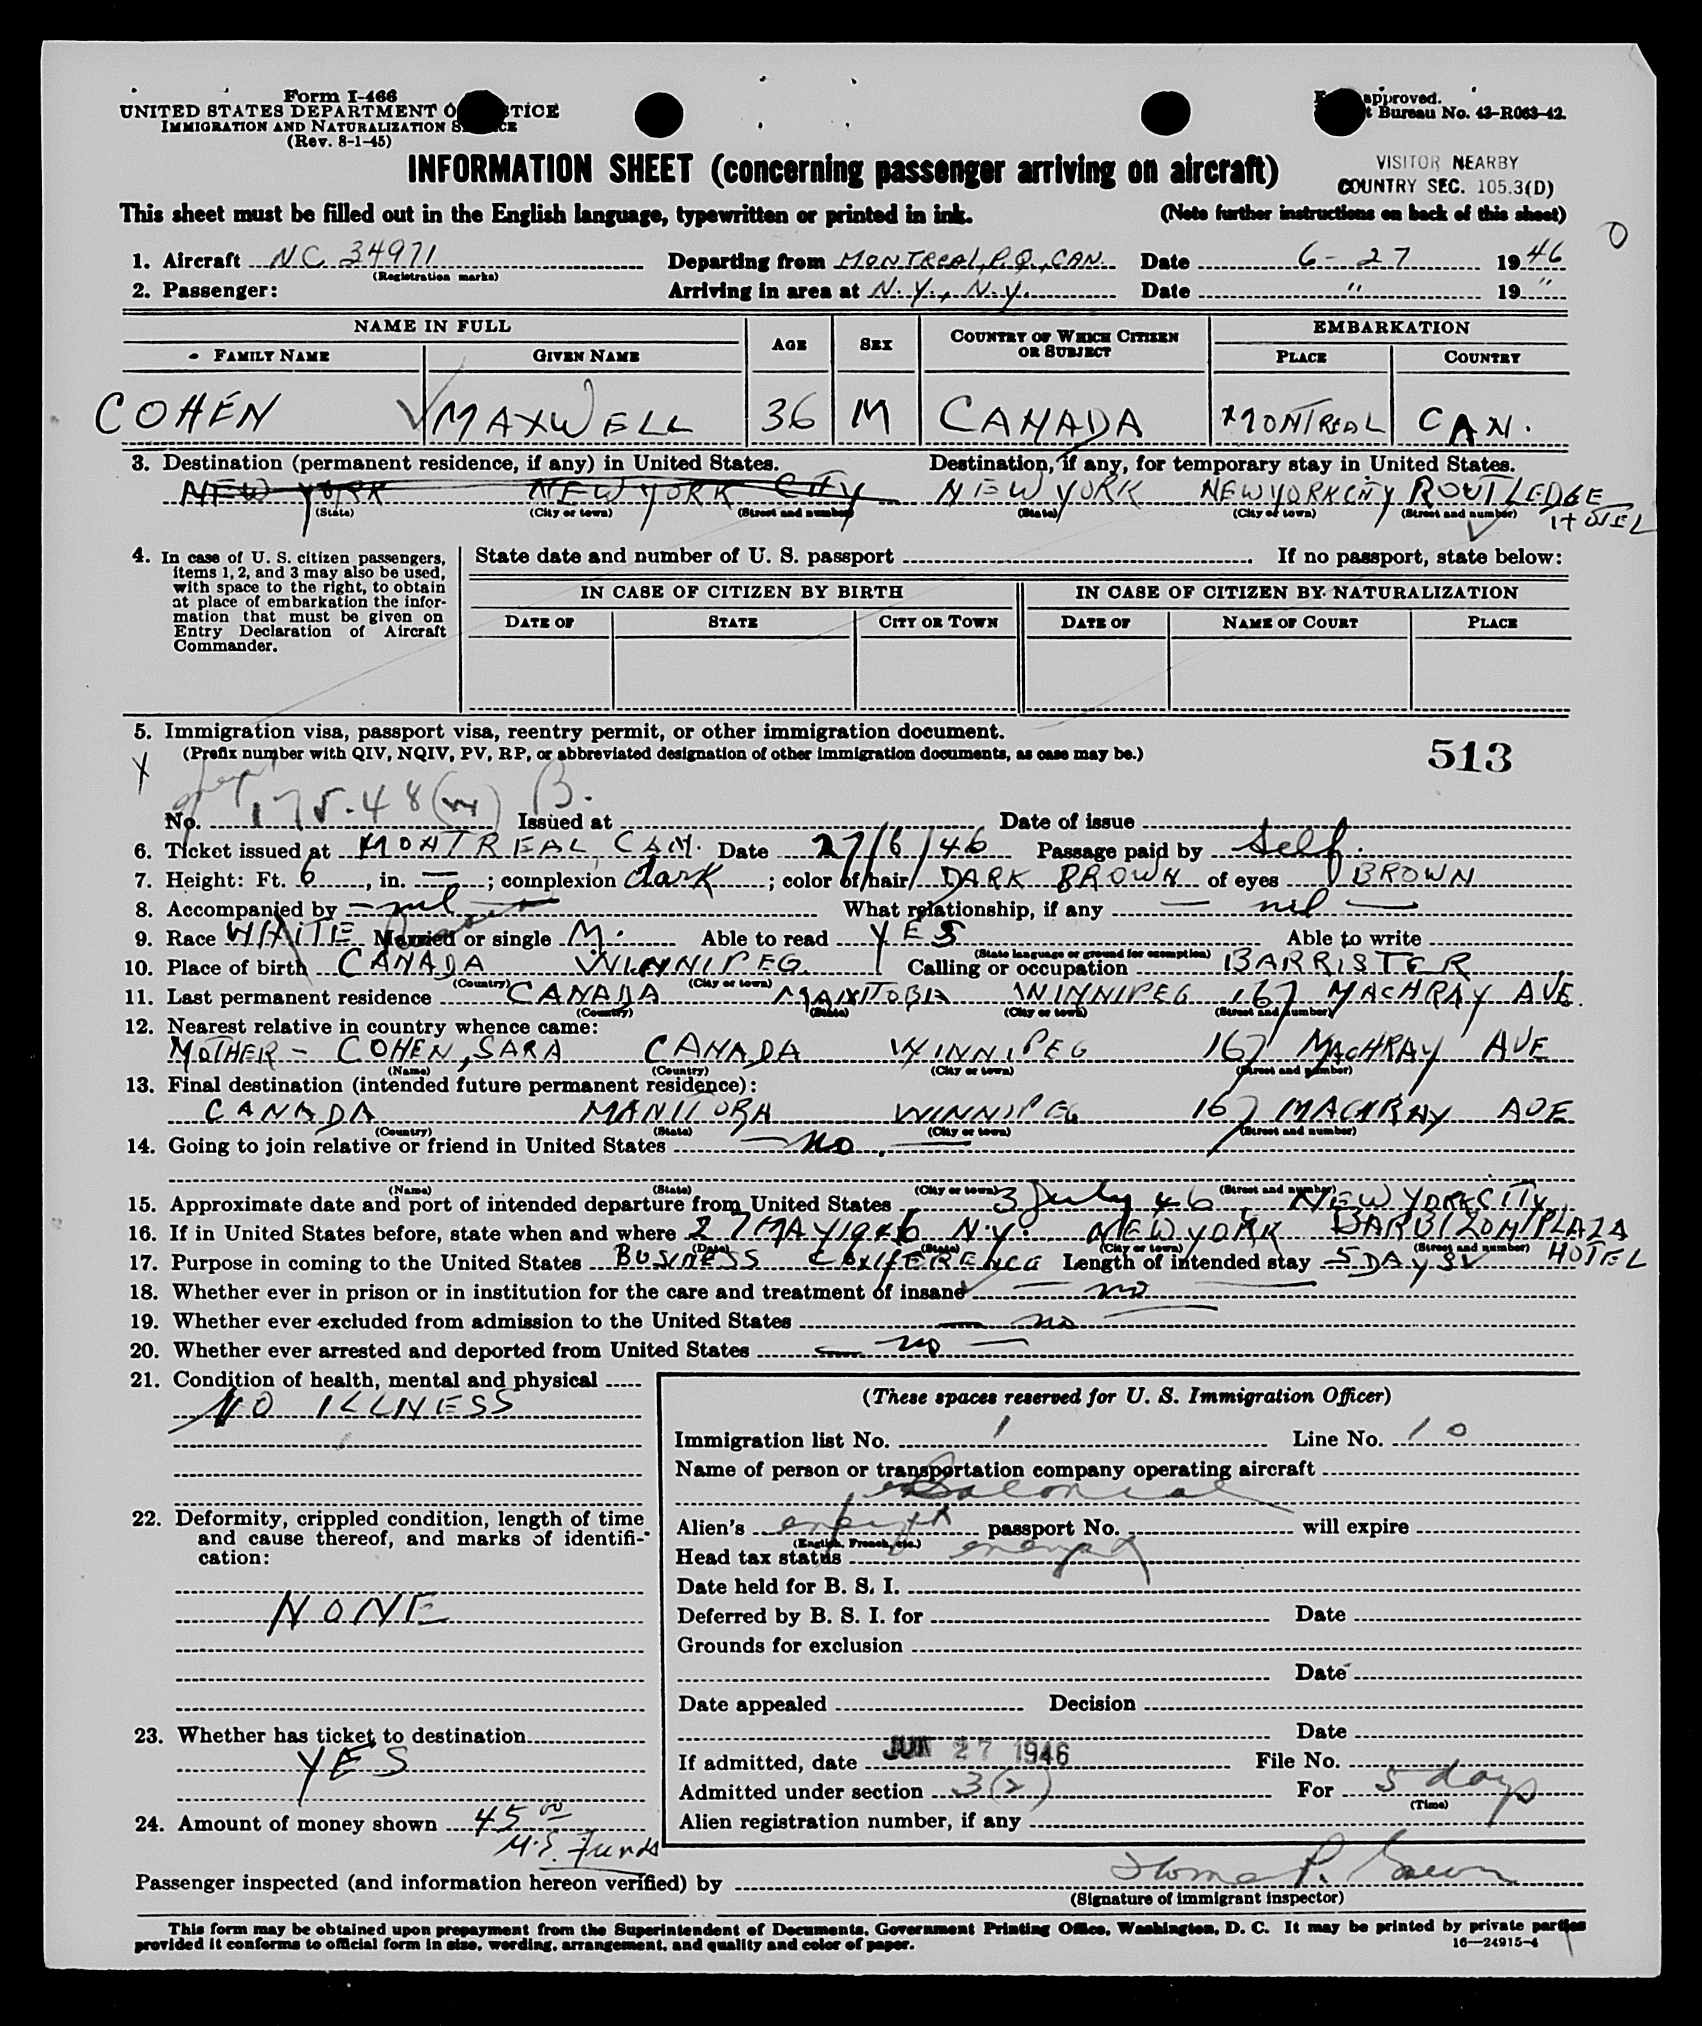 Form I-466
UNITED STATES DEPARTMENT OF JUSTICE
IMMIGRATION AND NATURALIZATION SERVICE
(Rev. 8-1-45)
approved.
Bureau No. 43-R063-42.
INFORMATION SHEET (concerning passenger arriving on aircraft)
VISITOR NEARBY
COUNTRY SEC. 105.3(D)
This sheet must be filled out in the English language, typewritten or printed in ink. (Note further instructions on back of this sheet)
1. Aircraft NC 34971 Departing from MONTREAL, P.Q., CAN. Date 6-27 1946
(Registration marks)
2. Passenger: Arriving in area at N.Y., N.Y. Date " 19 "
NAME IN FULL AGE SEX COUNTRY OF WHICH CITIZEN OR SUBJECT EMBARKATION
FAMILY NAME GIVEN NAME PLACE COUNTRY
COHEN MAXWELL 36 M CANADA MONTREAL CAN.
3. Destination (permanent residence, if any) in United States. Destination, if any, for temporary stay in United States.
NEW YORK NEW YORK CITY NEW YORK NEW YORK CITY ROUTLEDGE HOTEL
(State) (City or town) (Street and number) (State) (City or town) (Street and number)
4. In case of U. S. citizen passengers, items 1, 2, and 3 may also be used, with space to the right, to obtain at place of embarkation the information that must be given on Entry Declaration of Aircraft Commander.
State date and number of U. S. passport If no passport, state below:
IN CASE OF CITIZEN BY BIRTH IN CASE OF CITIZEN BY NATURALIZATION
DATE OF STATE CITY OR TOWN DATE OF NAME OF COURT PLACE
5. Immigration visa, passport visa, reentry permit, or other immigration document.
(Prefix number with QIV, NQIV, PV, RP, or abbreviated designation of other immigration documents, as case may be.)
513
No. 175.48 B. Issued at Date of issue
6. Ticket issued at MONTREAL, CAN. Date 27/6/46 Passage paid by Self.
7. Height: Ft. 6, in. —; complexion dark; color of hair DARK BROWN of eyes BROWN
8. Accompanied by — nil — What relationship, if any — nil —
9. Race WHITE Married or single M. Able to read YES Able to write
(State language or ground for exemption)
10. Place of birth CANADA WINNIPEG Calling or occupation BARRISTER
(Country) (City or town)
11. Last permanent residence CANADA MANITOBA WINNIPEG 167 MACHRAY AVE.
(Country) (State) (City or town) (Street and number)
12. Nearest relative in country whence came:
MOTHER - COHEN, SARA CANADA WINNIPEG 167 MACHRAY AVE
(Name) (Country) (City or town) (Street and number)
13. Final destination (intended future permanent residence):
CANADA MANITOBA WINNIPEG 167 MACHRAY AVE
(Country) (State) (City or town) (Street and number)
14. Going to join relative or friend in United States — no —
(Name) (State) (City or town) (Street and number)
15. Approximate date and port of intended departure from United States 3 July 46 NEW YORK CITY
16. If in United States before, state when and where 27 MAY 1946 N.Y. NEW YORK BARBIZON PLAZA HOTEL
(Date) (State) (City or town) (Street and number)
17. Purpose in coming to the United States BUSINESS CONFERENCE Length of intended stay 5 DAYS
18. Whether ever in prison or in institution for the care and treatment of insane — no —
19. Whether ever excluded from admission to the United States — no —
20. Whether ever arrested and deported from United States — no —
21. Condition of health, mental and physical
NO ILLNESS
22. Deformity, crippled condition, length of time and cause thereof, and marks of identification:
NONE
23. Whether has ticket to destination
YES
24. Amount of money shown 45.00
U.S. Funds
(These spaces reserved for U. S. Immigration Officer)
Immigration list No. 1 Line No. 10
Name of person or transportation company operating aircraft
Colonial
Alien's exempt passport No. will expire
(English, French, etc.)
Head tax status exempt
Date held for B. S. I.
Deferred by B. S. I. for Date
Grounds for exclusion
Date
Date appealed Decision
Date
If admitted, date JUN 27 1946 File No.
Admitted under section 3(2) For 5 days
(Time)
Alien registration number, if any
Passenger inspected (and information hereon verified) by
(Signature of immigrant inspector)
This form may be obtained upon prepayment from the Superintendent of Documents, Government Printing Office, Washington, D. C. It may be printed by private parties
provided it conforms to official form in size, wording, arrangement, and quality and color of paper. 16—24915-4